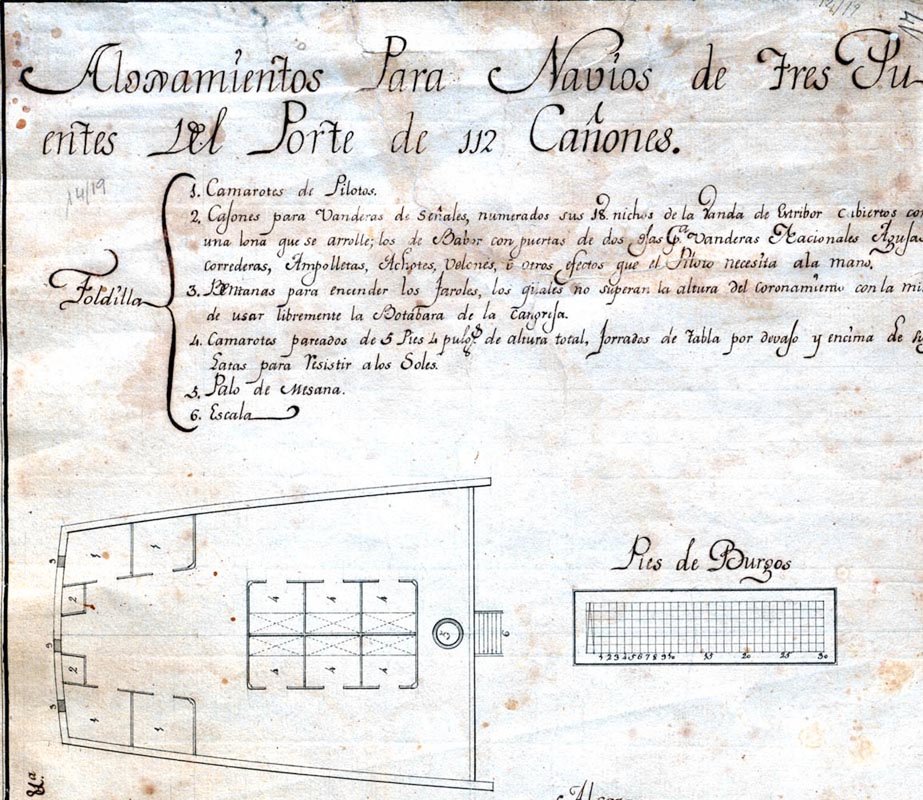 Aloxamientos Para Navios de Tres Pu-
entes Del Porte de 112 Cañones.
14/19
Toldilla
1. Camarotes de Pilotos.
2. Caxones para Vanderas de Señales, numerados sus 18 nichos de la Vanda de Extribor cubiertos con
una lona que se arrolle; los de Babor con puertas de dos ojas Pª Vanderas Nacionales Agujas
correderas, Ampolletas, Achotes, Velones, ú otros efectos que el Piloto necesita ala mano.
3. Bentanas para encender los faroles, los quales no superan la altura del coronamiento con la mi
de usar libremente la Botabara de la Cangreja.
4. Camarotes pareados de 5 Pies 4 pulgs de altura total, forrados de tabla por devaxo y encima de
Latas para resistir alos Soles.
5. Palo de Mesana.
6. Escala
Pies de Burgos
1 2 3 4 5 6 7 8 9 10 15 20 25 30
1 1
3
2 4 4 4
3 5 6
2 4 4 4
3
1 1